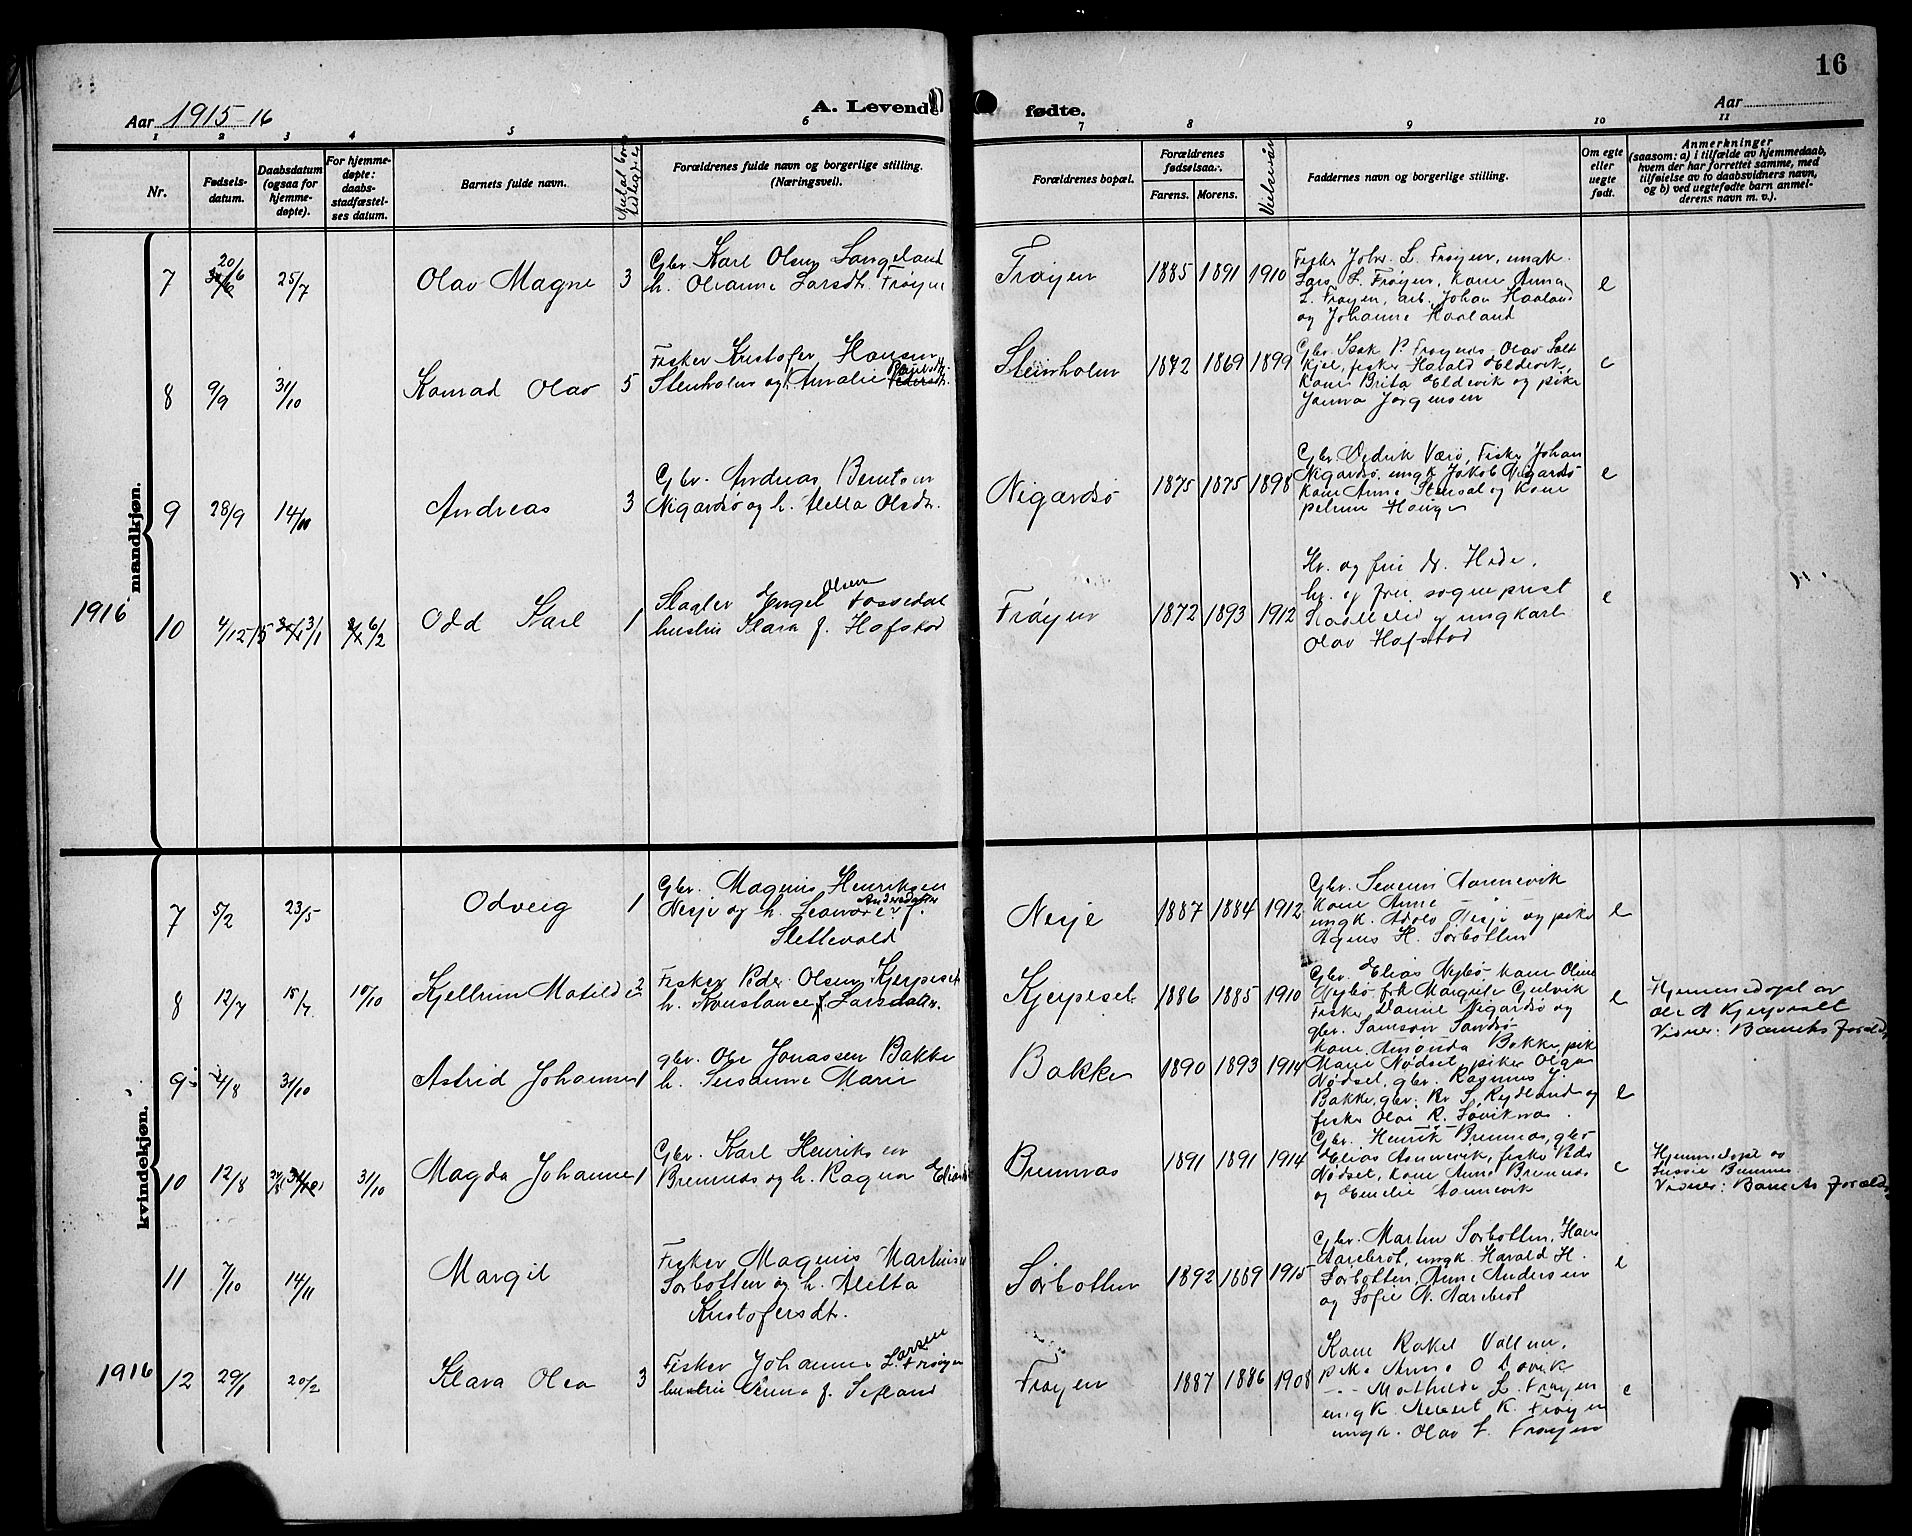 16
Aar 1915-16
A. Levende fødte.
Aar
1 2 3 4 5 6 7 8 9 10 11
Nr.
Fødsels-
datum.
Daabsdatum
(ogsaa for
hjemme-
døpte).
For hjemme-
døpte:
daabs-
stadfæstel-
ses datum.
Barnets fulde navn.
Forældrenes fulde navn og borgerlige stilling.
(Næringsvei).
Forældrenes bopæl.
Forældrenes
fødselsaar.
Farens. Morens.
Vielsesår
Faddernes navn og borgerlige stilling.
Om egte
eller
uegte
født.
Anmerkninger
(saasom: a) i tilfælde av hjemmedaab,
hvem der har forrettet samme, med
tilføielse av to daabsvidners navn,
og b) ved uegtefødte barn anmel-
derens navn m. v.).
mandkjøn.
7 20/6 25/7 Olav Magne 3
Gbr. Karl Olsen Langeland
h. Oleanne Larsdt. Frøyen
Frøyen 1885 1891 1910
Fisker Johs. L. Frøyen, ungk.
Lars L. Frøyen, kone Anna
L. Frøyen, arb. Johan Haaland
og Johanne Haaland
e
8 9/9 31/10 Konrad Olav 5
Fisker Kristofer Hansen
Stenholm og Amalie Pedersdt.
Stenholm 1872 1869 1899
Gbr. Isak P. Frøynes, Olav Salt
kjel, fisker Harald Eldevik,
kone Brita Eldevik og pike
Janna Jørgensen
e
9 28/9 14/11 Andreas 3
Gbr. Andreas Berntsen
Nigardsø og h. Aletta Olsdt.
Nigardsø 1875 1875 1898
Gbr. Didrik Værø, Fisker Johan
Nigardsø, ungk. Jakob Nigardsø
kone Anne Stensal og kone
e
1916
10 4/12 15 3/1 6/2 Odd Karl 1
Slagter Engel Olsen Fossedal
hustru Klara f. Hofstad
Frøyen 1872 1893 1912
Hr. og fru dr. Hede,
hr. og fru sogneprest
og ungkarl
Olav Hofstad
e
kvindekjøn.
7 5/2 23/5 Odveig 1
Gbr. Magnus Henriksen
Nesje og h. Leonore Andersdatter f.
Slettevold
Nesje 1887 1884 1912
Gbr. Severin Aannevik
kone Anne — " —
ungk. Adolv Nesje og pike
Agnes H. Sørbotten
e
8 12/7 15/7 10/10 Kjellrun Matilde 2
Fisker Peder Olsen Kjerpeset
h. Konstance f. Larsdatter.
Kjerpeset 1886 1885 1910
Gbr. Elias Nybø kone Oline
Nybø frk. Margrete Gulvik
Fisker Daniel Nigardsø og
gbr. Samson Sandsø
e
Hjemmedøpt av
Ole A Kjerpeset
Vidner: Barnets foreldre
9 4/8 31/10 Astrid Johanne 1
gbr. Ole Jonassen Bakke
h. Susanne Marie
Bakke 1890 1893 1914
kone Amanda Bakke, pik
Marie Nødset, pike Olga
Nødset, gbr. Rasmus J.
Bakke, gbr. Kr. S. Rydland og
fisker Olai R. Løviknes.
e
10 12/8 31/10 Magda Johanne 1
Gbr. Karl Henriksen
Bremnes og h. Ragna
Bremnes 1891 1891 1914
Gbr. Henrik Bremnes, gbr
Elias Aannevik, fisker Peder
Nødset, kone Anne Bremnes
og Emelie Aannevik
e
Hjemmedøpt av
Vidner: Barnets foreldre
11 7/10 14/11 Margit
Fisker Magnus Martinsen
Sørbotten og h. Aletta
Kristofersdt.
Sørbotten 1892 1889 1915
Gbr. Martin Sørbotten, Hans
Aarebrot, ungk. Harald H.
Sørbotten, Anne Andersen
og Sofie N. Aarebrot
e
1916
12 29/1 20/2 Klara Olea 3
Fisker Johannes Larsen Frøyen
hustru f. Sefland
Frøyen 1887 1886 1908
Kone Rakel
pike Anne O
— " — Mathilde L. Frøyen
ungk. K. Frøyen
ungk. Olav L. Frøyen
e